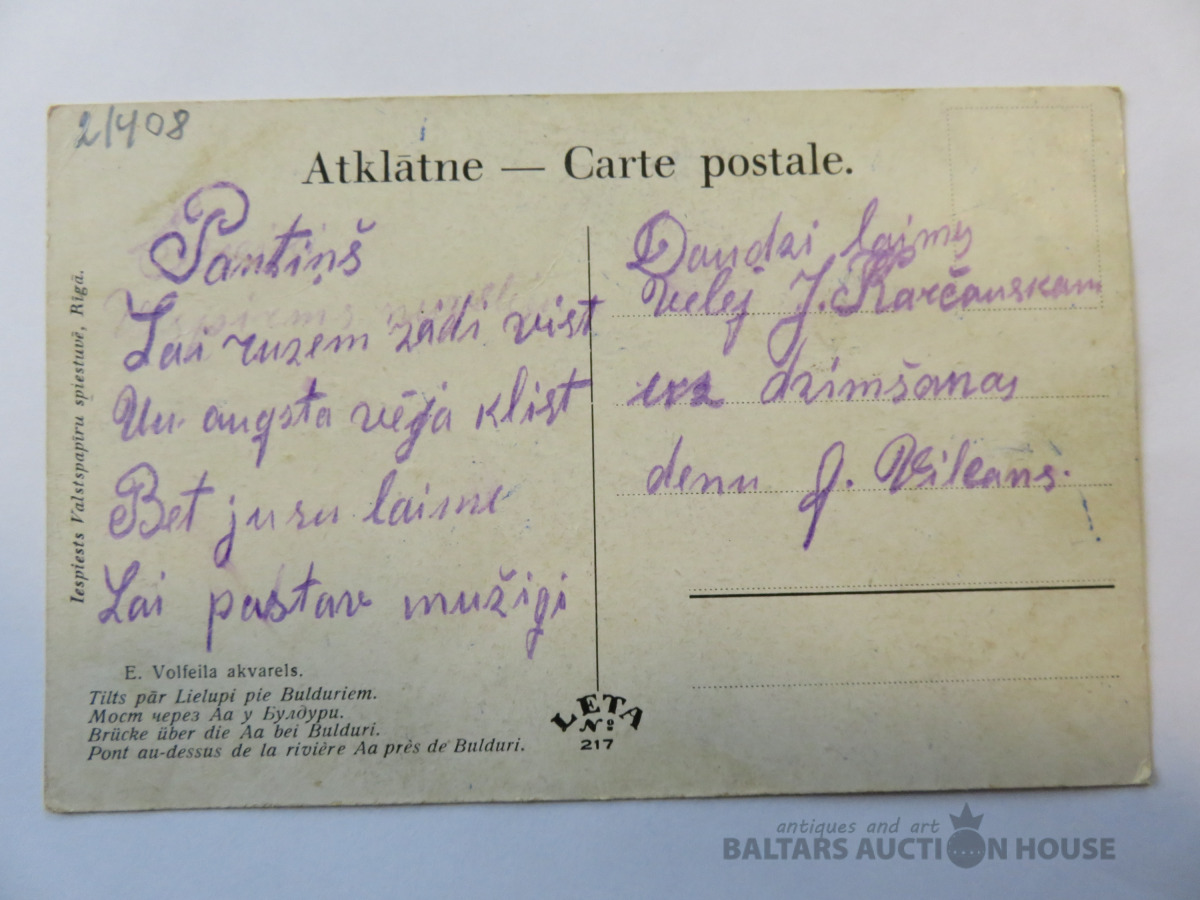 2/408
Atklātne — Carte postale.
Pantiņš
Lai ruzem zādi vist
Un augsta vēja klist
Bet jusu laime
Lai pastav mužigi
Daudzi laimes
velej J. Karčauskam
uz dzimšanas
denu J. Vilcans.
Iespiests Valstspapīru spiestuvē, Rīgā.
E. Volfeila akvarels.
Tilts pār Lielupi pie Bulduriem.
Мост через Аа у Булдури.
Brücke über die Aa bei Bulduri.
Pont au-dessus de la rivière Aa près de Bulduri.
LETA
No
217
antiques and art
BALTARS AUCTION HOUSE